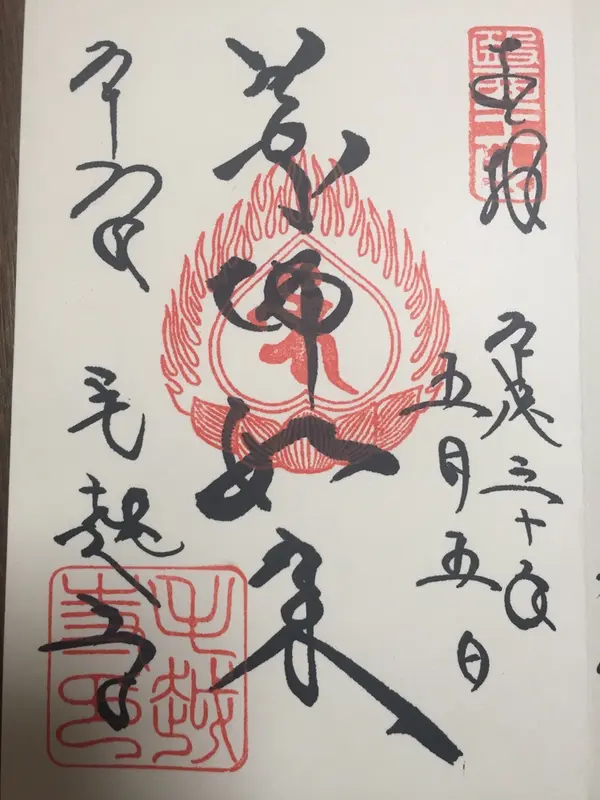 奉拝
平成三十年
五月五日
薬師如来
平泉 毛越寺
毛越
寺印